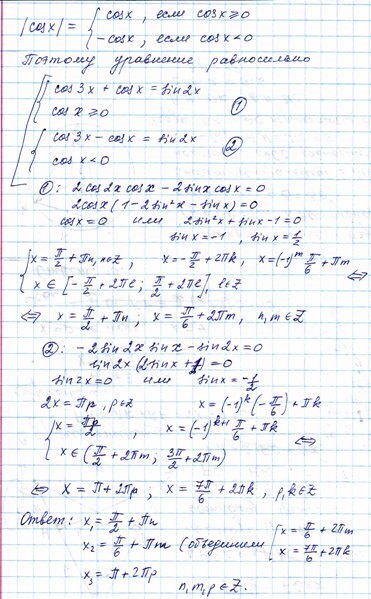 |cosx| = { cosx, если cosx ≥ 0
−cosx, если cosx < 0
Поэтому уравнение равносильно
cos3x + cosx = sin2x
cosx ≥ 0 ①
cos3x − cosx = sin2x
cosx < 0 ②
①: 2cos2x cosx − 2sinx cosx = 0
2cosx (1 − 2sin²x − sinx) = 0
cosx = 0 или 2sin²x + sinx − 1 = 0
sinx = −1, sinx = 1/2
{ x = π/2 + πn, n∈Z, x = −π/2 + 2πk, x = (−1)^m π/6 + πm
x ∈ [−π/2 + 2πl; π/2 + 2πl], l∈Z ⇔
⇔ x = π/2 + πn, x = π/6 + 2πm, n,m∈Z
②: −2sin2x sinx − sin2x = 0
sin2x (2sinx + 1) = 0
sin2x = 0 или sinx = −1/2
2x = πp, p∈Z x = (−1)^k (−π/6) + πk
{ x = πp/2, x = (−1)^{k+1} π/6 + πk
x ∈ (π/2 + 2πm; 3π/2 + 2πm) ⇔
⇔ x = π + 2πp, x = 7π/6 + 2πk, p,k∈Z
Ответ: x₁ = π/2 + πn
x₂ = π/6 + πm (объединили [ x = π/6 + 2πm
x = 7π/6 + 2πk
x₃ = π + 2πp
n,m,p ∈ Z.